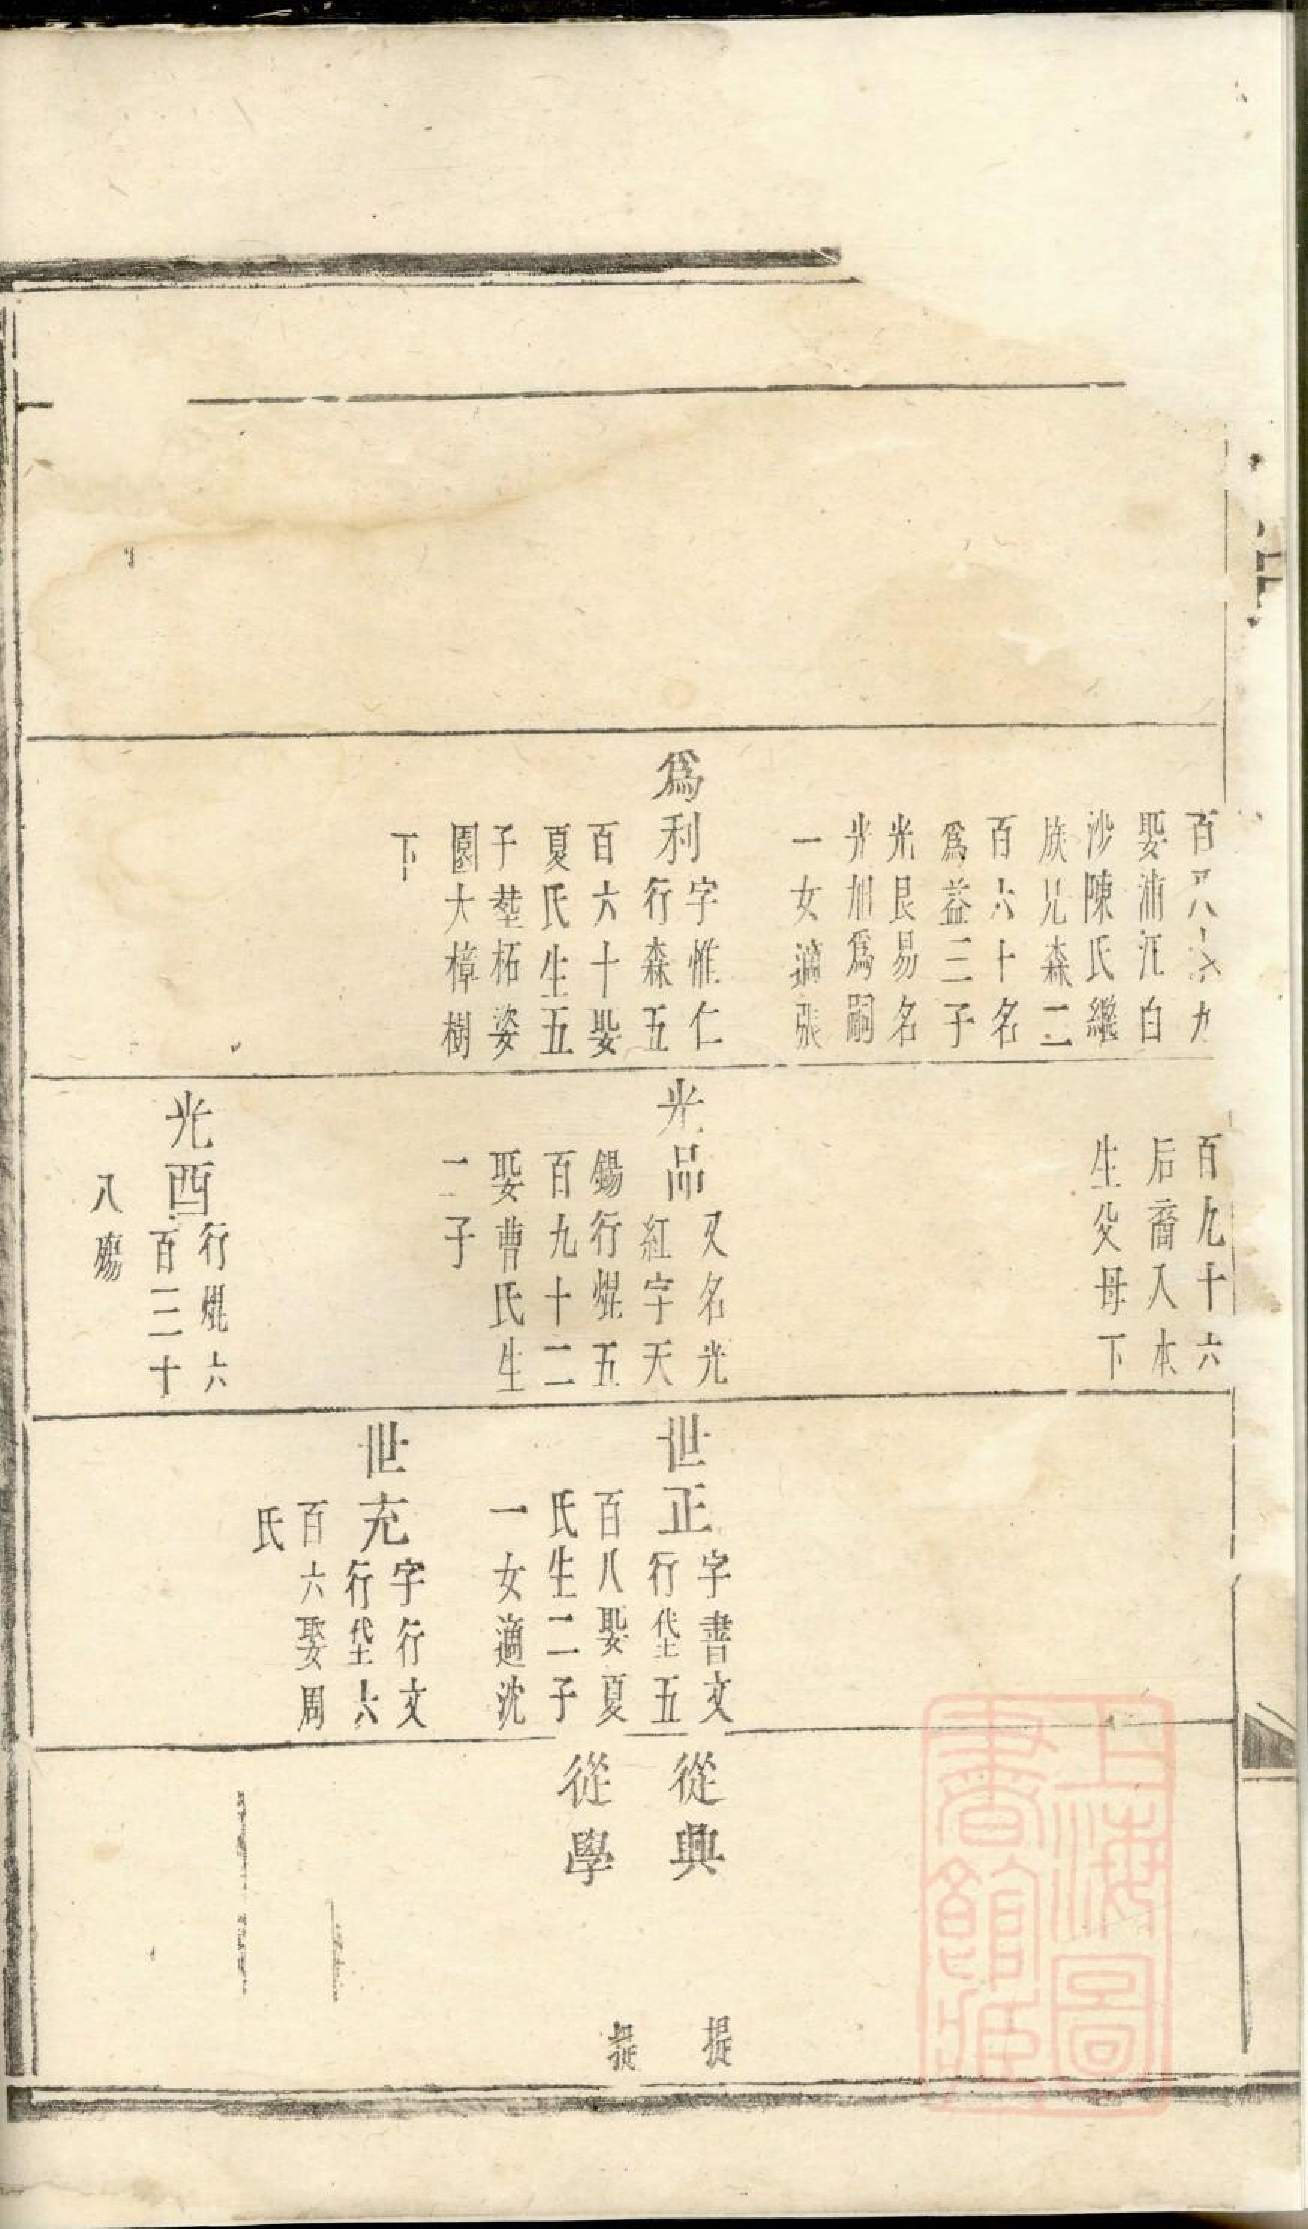 百八
娶浦沅白
沙陳氏繼
族兄森二
百六十名
爲益三子
光良易名
光加爲嗣
一女適張
爲利
字惟仁
行森五
百六十娶
夏氏生五
子塟柘姿
園大樟樹
下
百九十六
后裔入本
生父母下
光品
又名光
紅字天
錫行焜五
百九十二
娶曹氏生
二子
光酉
行焜六
百三十
八殤
世正
字書文
行垈五
百八娶夏
氏生二子
一女適沈
世充
字行文
行垈六
百六娶周
氏
從典
提
從學
提
上海圖
書館